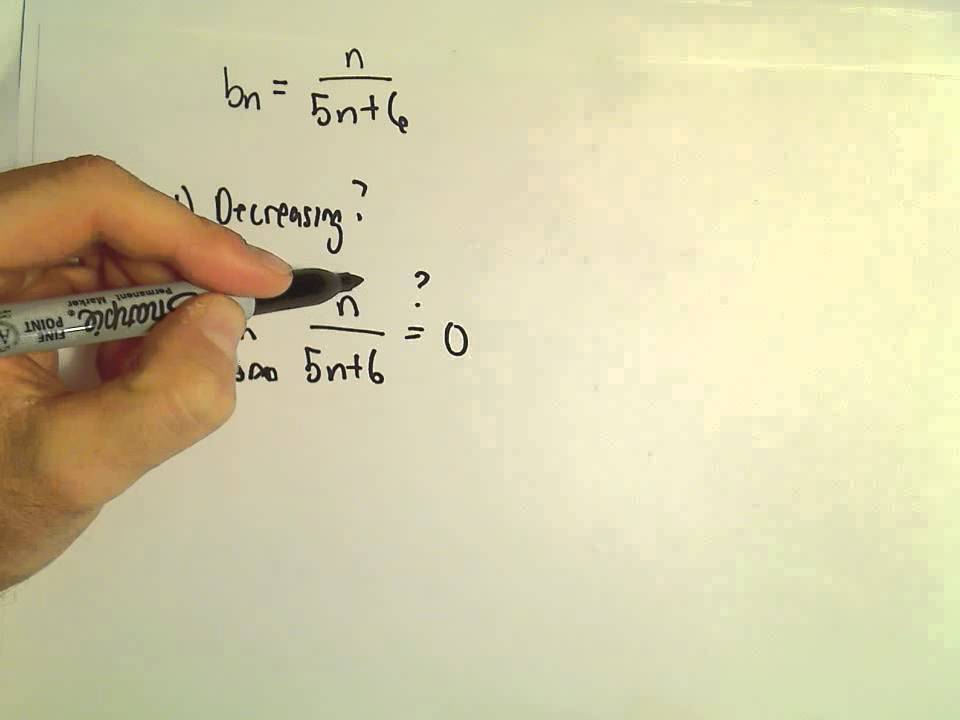 bn = n / 5n+6
1) Decreasing?
n / 5n+6 =? 0
Sharpie
Permanent Marker
FINE POINT